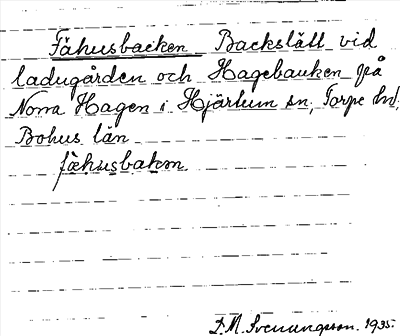 Fähusbacken Backslätt vid
ladugården och Hagebauken på
Norra Hagen i Hjärtum sn, Torpe hd,
Bohus län
fähusbakən.
D.M. Svenungsson. 1935.